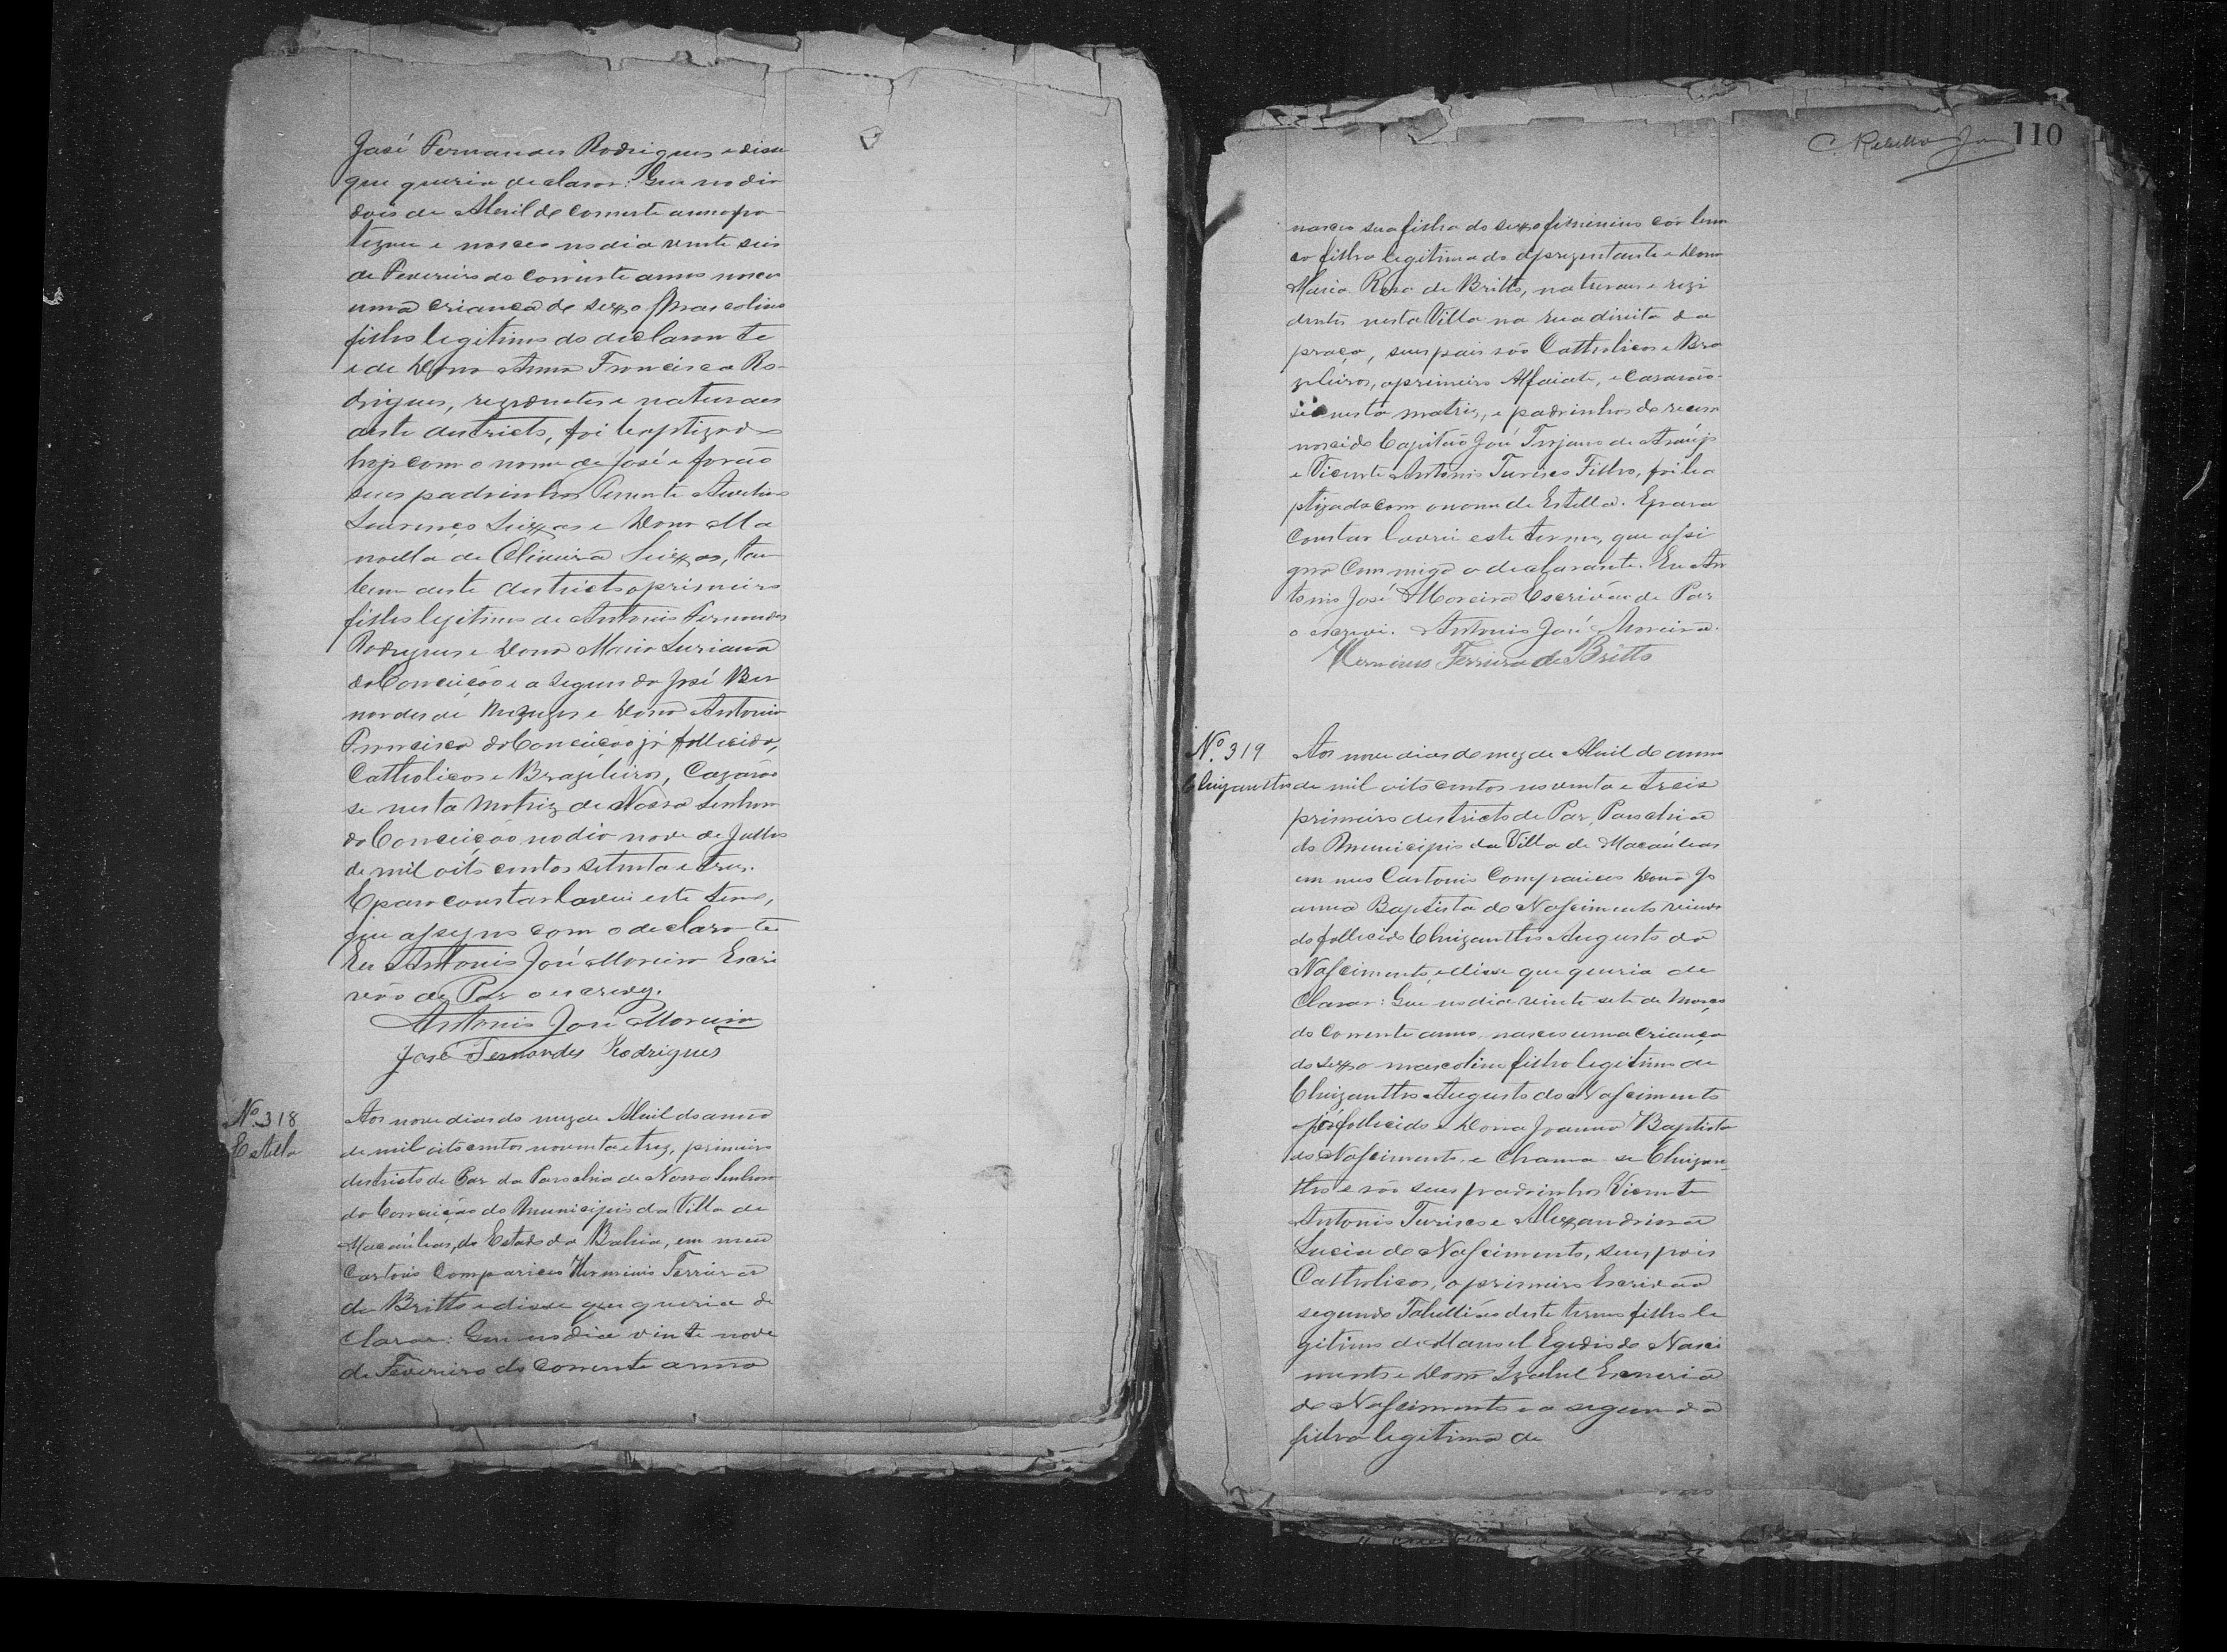 José Fernandes Rodrigues e disse
que queria declarar: Que no dia
dois de Abril de corrente anno
e nasceo no dia vinte seis
de Fevereiro do corrente anno nasceu
uma criança de sexxo Mascolino
filho legitimo do declarante
e de Dona Anna Francisca Ro-
drigues, rezedentes e naturaes
deste destricto, foi baptizado
hoje com o nome de José e forão
seus padrinhos Tenente
Lourenço e Dona Ma
noella de Oliveira tam
bem deste destricto o primeiro
filho legitimo de Antonio Fernandes
Rodrigues e Dona Maria Luriana
da Conceição e a segunda José Ber
nardes de Menezes e Dona Antonia
Francisca da Conceicão já fallecida,
Catholicos e Brazileiros, Cazarão
se nesta Matriz de Nossa Senhora
da Conceição no dia nove de Julho
de mil oito centos setenta e tres.
E para constar lavrei este termo,
que assigno com o declarante
Eu Antonio José Moreira Escri
vão de Paz o escrevy.
Antonio José Moreira
José Fernandes Rodrigues
Nº 318
Estella
Aos nove dias do mez de Abril do anno
de mil oito centos noventa e trez, primeiro
destricto de Paz da Parochia de Nossa Senhora
da Conceição do Municipio da Villa de
Macaúbas, do Estado da Bahia, em meu
Cartorio compareceo Herminio Ferreira
de Britto e disse que queria de
clarar: Que no dia vinte nove
de Fevereiro do corrente anno
C. Rebello Jor 110
nasceo sua filha do sexxo feminino côr bran
ca filha legitima do aprezentante e Dona
Maria Roza de Britto, naturaes e rezi
dentes nesta Villa na rua direita da
praça, seus pais são Catholicos e Bra
zileiros, o primeiro Alfaiate, e casarão-
se nesta matriz, e padrinhos do recem
nascido Capitão José Trajano de Araújo
e Vicente Antonio Turisco Filho, foi ba
ptizada com o nome de Estella. E para
constar lavrei este termo, que assi
gna commigo o declarante. Eu An
tonio José Moreira Escrivão de Paz
o escrevi. Antonio José Moreira.
Herminio Ferreira de Britto
Nº 319
Chrizantho
Aos nove dias do mez de Abril do anno
de mil oito centos noventa e treis
primeiro destricto de Paz, Parochia
do Municipio da Villa de Macaúbas
em meo Cartorio Compareceo Dona Jo
anna Baptista do Nascimento viuva
do fallecido Chrizantho Augusto do
Nascimento, e disse que queria de
clarar: Que no dia vinte sete de Março
do corrente anno, nasceo uma criança
do sexxo mascolino filho legitimo de
Chrizantho Augusto do Nascimento
já fallecido e Dona Joanna Baptista
do Nascimento e chama-se Chrizan-
tho e são seus padrinhos Vicente
Antonio Turisco e Alexxandrina
Lucia do Nascimento, seus pais
Catholicos, o primeiro Escrivão
segundo Tabellião deste termo filho le
gitimo de Manoel Egidio do Nasci
mento e Dona Izabel Esmeria
do Nascimento e a segunda
filha legitima de